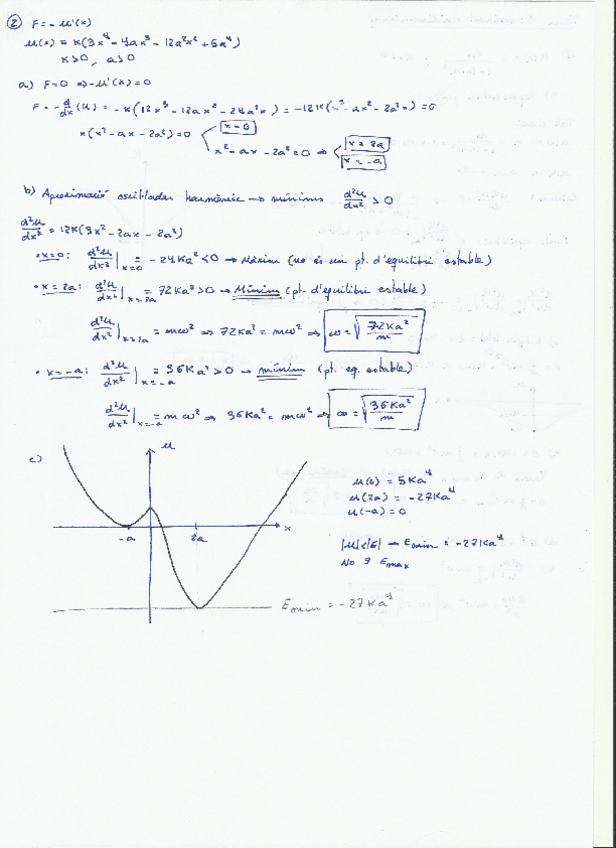 ② F = - U'(x)
U(x) = K(3x⁴ - 4ax³ - 12a²x² + 5a⁴)
K>0, a>0
a) F=0 ⇒ -U'(x)=0
F = -d/dx (U) = -K(12x³ - 12ax² - 24a²x) = -12K(x³ - ax² - 2a²x) = 0
x(x² - ax - 2a²) = 0 x=0
x² - ax - 2a² = 0 ⇒ x = 2a
x = -a
b) Aproximació oscil·lador harmònic → mínims d²U/dx² > 0
d²U/dx² = 12K(3x² - 2ax - 2a²)
• x=0: d²U/dx² |x=0 = -24Ka² < 0 → Màxim (no és un pt. d'equilibri estable)
• x=2a: d²U/dx² |x=2a = 72Ka² > 0 → Mínim (pt. d'equilibri estable)
d²U/dx² |x=2a = mω² ⇒ 72Ka² = mω² ⇒ ω = √(72Ka²/m)
• x=-a: d²U/dx² |x=-a = 36Ka² > 0 → mínim (pt. eq. estable)
d²U/dx² |x=-a = mω² ⇒ 36Ka² = mω² ⇒ ω = √(36Ka²/m)
c) U
U(0) = 5Ka⁴
U(2a) = -27Ka⁴
U(-a) = 0
-a 2a x
|U|<|E| → Emin = -27Ka⁴
No ∃ Emax
Emin = -27Ka⁴